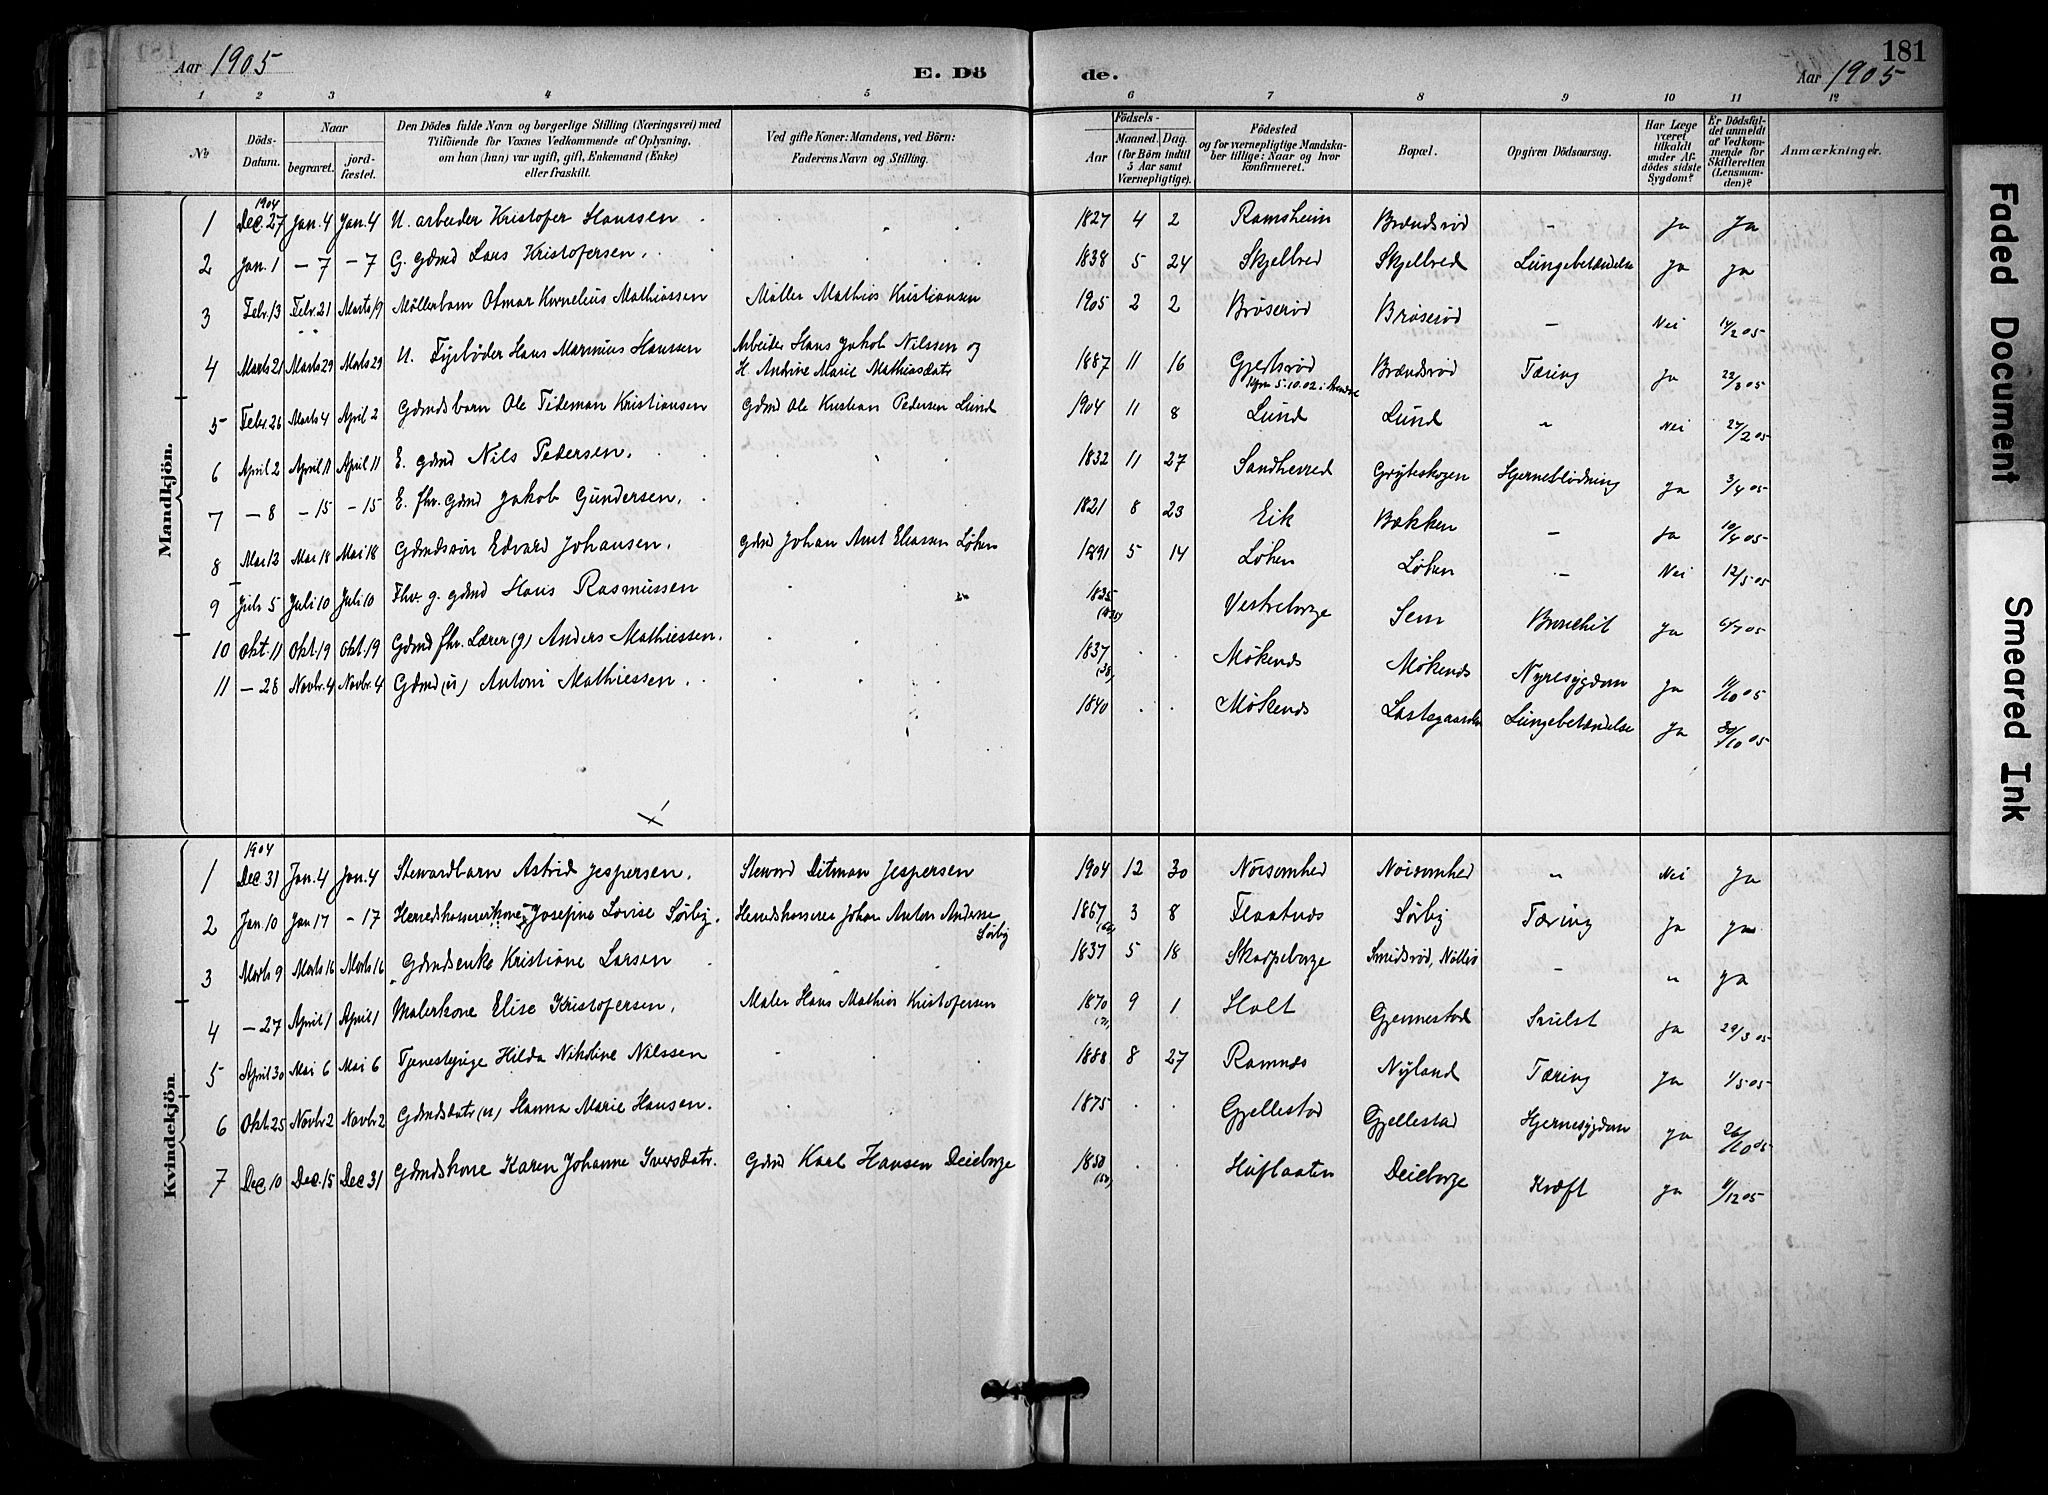 Aar 1905
E. Dö
de.
181
Aar 1905
1 2 3 4 5 6 7 8 9 10 11 12
№
Döds-Datum.
Naar
begravet.
jord-fæstet.
Den Dödes fulde Navn og borgerlige Stilling (Næringsvei) med
Tilföiende for Voxnes Vedkommende af Oplysning,
om han (hun) var ugift, gift, Enkemand (Enke)
eller fraskilt.
Ved gifte Koner: Mandens, ved Börn:
Faderens Navn og Stilling.
Födsels-
Aar
Maaned. Dag.
(for Börn indtil
5 Aar samt
Værnepligtige).
Födested
og for værnepligtige Mandska-
ber tillige: Naar og hvor
konfirmeret.
Bopæl.
Opgiven Dödsaarsag.
Har Læge
været
tilkaldt
under Af-
dödes sidste
Sygdom?
Er Dödsfal-
det anmeldt
af Vedkom-
mende for
Skifteretten
(Lensman-
den)?
Anmærkninger.
Mandkjön.
1904
1 Dec. 27 Jan. 4 Jan. 4 U. arbeider Kristofer Hanssen 1827 4 2 Ramsheim Brændsrød - Ja Ja
2 Jan. 1 - 7 - 7 G. gdmd Lars Kristofersen. 1838 5 24 Skjelbred Skjelbred Lungebetændelse Ja Ja
3 Febr. 13 Febr. 21 Marts 19 Møllerbarn Otmar Kornelius Mathiassen Møller Mathias Kristiansen 1905 2 2 Brøserød Brøserød - Nei 14/2 05
4 Marts 21 Marts 29 Marts 29 U. Fyrbøder Hans Marinius Hanssen Arbeider Hans Jakob Nilssen og
H. Andrine Marie Mathiasdatr 1887 11 16 Gjertsrød Brændsrød Tæring Ja 22/3 05
5 Febr. 26 Marts 4 April 2 Gdmdsbarn Ole Tideman Kristiansen Gdmd Ole Kristian Pedersen Lund 1904 11 8 Lund Lund " Nei 27/2 05
6 April 2 April 11 April 11 E. gdmd Nils Pedersen. 1832 11 27 Sandherred Grøteskogen Hjerneblødning Ja 3/4 05
7 - 8 - 15 - 15 E. fhv. gdmd Jakob Gundersen. 1821 8 23 Eik Bækken - Ja 10/4 05
8 Mai 12 Mai 18 Mai 18 Gdmdssøn Edvard Johansen. Gdmd Johan Arnt Eliassen Løken 1891 5 14 Løken Løken - Nei 12/5 05
9 Juli 5 Juli 10 Juli 10 Fhv. g. gdmd Hans Rasmussen 1835 Vestreborge Sem Bronchit Ja 6/7 05
10 Okt. 11 Okt. 19 Okt. 19 Gdmd fhv. Lærer (g) Anders Mathiessen. 1837 (38) Møkenes Møkenes Nyresygdom Ja 11/10 05
11 - 28 Novbr. 4 Novbr. 4 Gdmd (u) Antoni Mathiessen. 1840 Møkenes Lungebetændelse Ja 30/10 05
Kvindekjön
1904
1 Dec 31 Jan. 4 Jan. 4 Stewardbarn Astrid Jespersen. Steward Ditman Jespersen 1904 12 30 Nøisomhed Nøisomhed " Nei Ja
2 Jan. 10 Jan 17 - 17 Herredskassererkone Josefine Lovise Sørby. Herredskasserer Johan Anton Anderse
Sørby 1867 3 8 Flaatnes Sørby Tæring Ja Ja
3 Marts 9 Marts 16 Marts 16 Gdmdsenke Kristiane Larsen 1837 5 18 Skarpeborge Smidsrød, Nøtterø - " Ja
4 - 27 April 1 April 1 Malerkone Elise Kristofersen. Maler Hans Mathias Kristofersen 1870 9 1 Holt Gjennestad Svulst Ja 29/3 05
5 April 30 Mai 6 Mai 6 Tjenestepige Hilda Nikoline Nilssen 1888 8 27 Ramnes Nyland Tæring Ja 1/5 05
6 Okt. 25 Novbr 2 Novbr 2 Gdmdsdatr (u) Hanna Marie Hansen. 1875 Gjellestad Gjellestad Hjernesygdom Ja 26/10 05
7 Dec 10 Dec. 15 Dec 31 Gdmdskone Karen Johanne Iversdatr. Gdmd Karl Hansen Deieborge 1850 Huflaaten Deieborge Kræft Ja 11/12 05
Faded Document
Smeared Ink